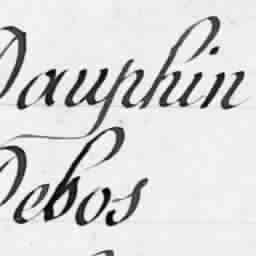 Dauphin
Debos